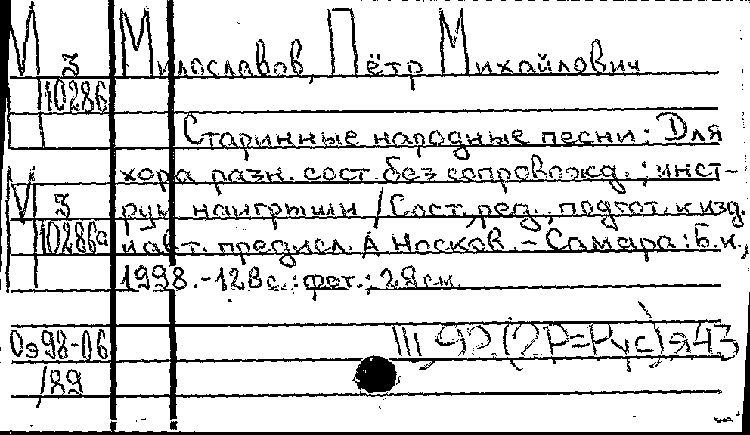 М з Милославов, Пётр Михайлович
10286
Старинные народные песни: Для
хора разн. сост. без сопровожд.; инст-
М з рум. наигрыши / Сост., ред., подгот. к изд.
10286а и авт. предисл. А. Носков. - Самара: Б.и.,
1998. - 128 с.: фот.; 29 см.
Оэ98-06 Щ92.(2Р=Рус)я43
/89